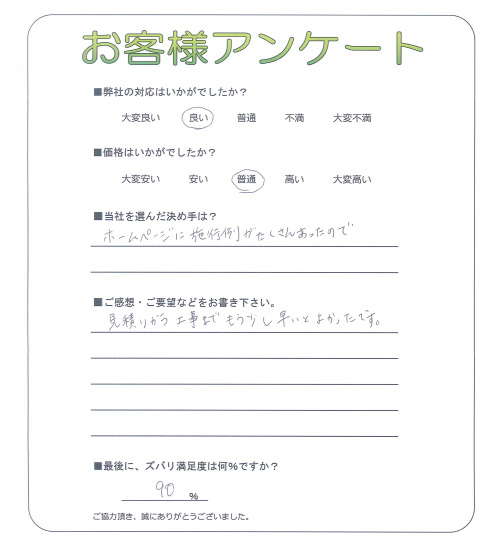 お客様アンケート
■弊社の対応はいかがでしたか？
大変良い 良い 普通 不満 大変不満
■価格はいかがでしたか？
大変安い 安い 普通 高い 大変高い
■当社を選んだ決め手は？
ホームページに施行例がたくさんあったので
■ご感想・ご要望などをお書き下さい。
見積りから工事までもう少し早いとよかったです。
■最後に、ズバリ満足度は何%ですか？
90 %
ご協力頂き、誠にありがとうございました。